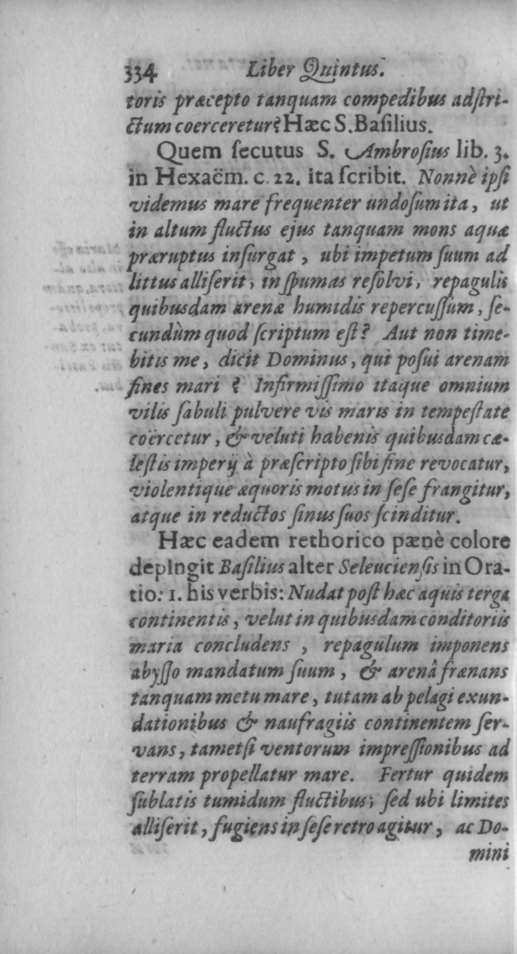 334 Liber Quintus.
toris præcepto tanquam compedibus adſtri-
ctum coerceretur? Hæc S. Baſilius.
Quem ſecutus S. Ambroſius lib. 3.
in Hexaëm. c. 22. ita ſcribit. Nonnè ipſi
videmus mare frequenter undoſum ita, ut
in altum fluctus ejus tanquam mons aquæ
præruptus inſurgat, ubi impetum ſuum ad
littus alliſerit, in ſpumas reſolvi, repagulis
quibusdam arenæ humidis repercuſſum, ſe-
cundùm quod ſcriptum eſt? Aut non time-
bitis me, dicit Dominus, qui poſui arenam
fines mari? Infirmiſſimo itaque omnium
vilis ſabuli pulvere vis maris in tempeſtate
coërcetur, & veluti habenis quibusdam cæ-
leſtis imperij à præſcripto ſibi fine revocatur,
violentique æquoris motus in ſeſe frangitur,
atque in reductos ſinus ſuos ſcinditur.
Hæc eadem rethorico pænè colore
depingit Baſilius alter Seleucienſis in Ora-
tio: 1. his verbis: Nudat poſt hæc aquis terga
continentis, velut in quibusdam conditoriis
maria concludens, repagulum imponens
abyſſo mandatum ſuum, & arenâ frænans
tanquam metu mare, tutam ab pelagi exun-
dationibus & naufragiis continentem ſer-
vans, tametſi ventorum impreſſionibus ad
terram propellatur mare. Fertur quidem
ſublatis tumidum fluctibus; ſed ubi limites
alliſerit, fugiens in ſeſe retro agitur, ac Do-
mini